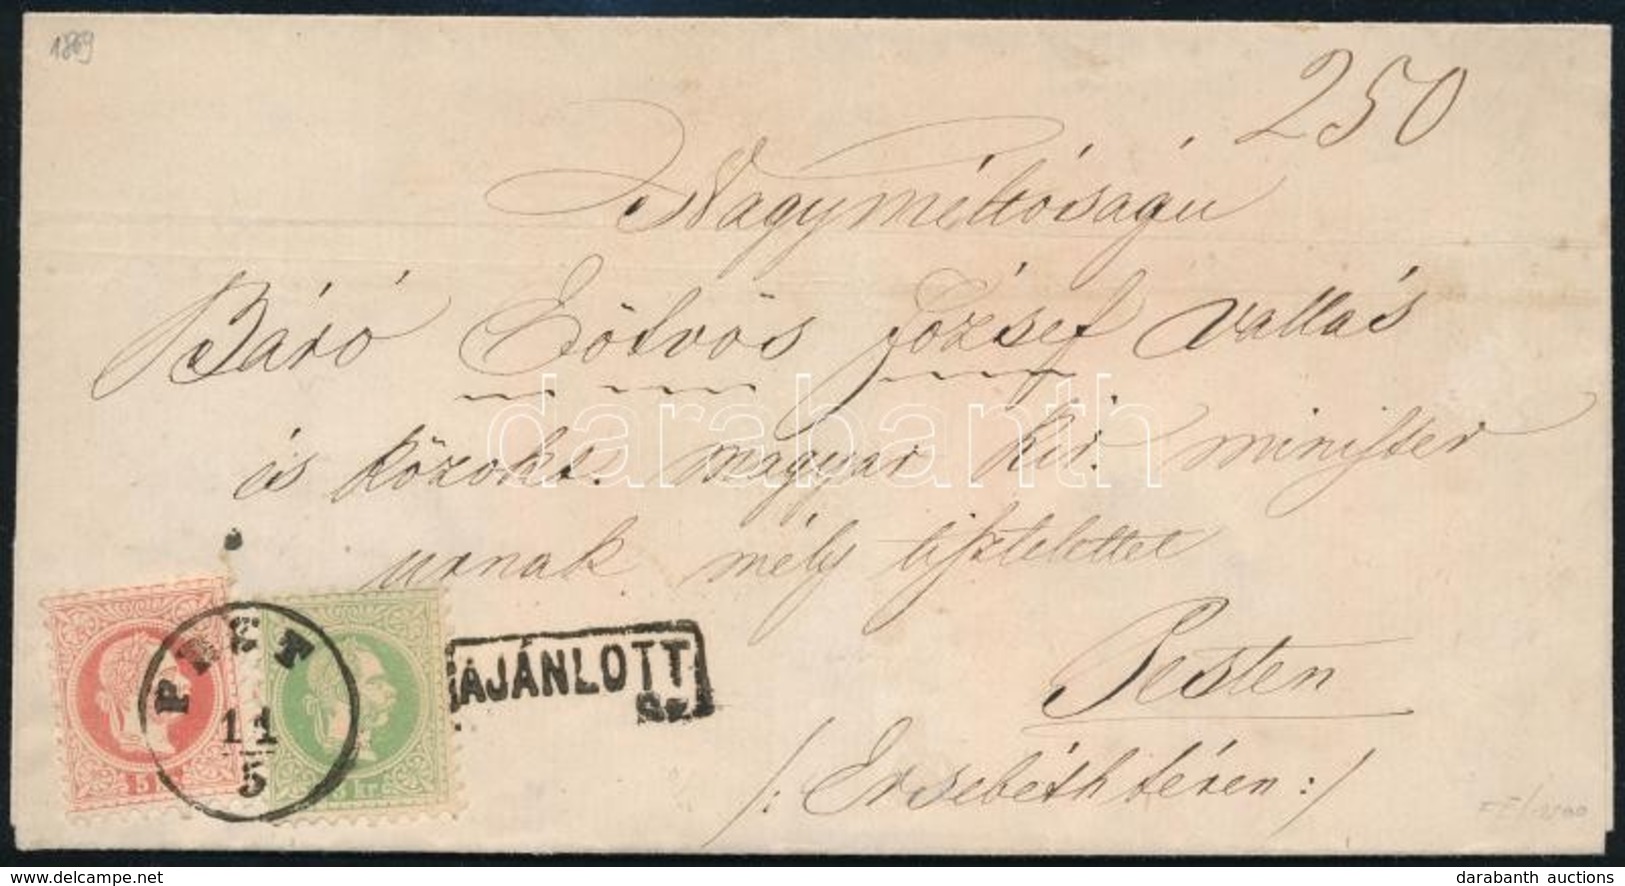 1869
250
Nagyméltóságú
Báró Eötvös József vallás
és közokt. magyar kir. minister
urnak mély tisztelettel
Pesten
/: Ersébéth téren :/
PEST
11
5
5
3 kr
AJÁNLOTT
Sz.
darabanth
delcampe.net
darabanth auctions